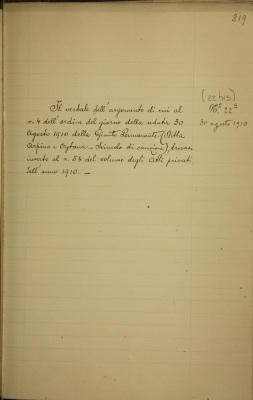 819
(22 bis)
N.° 22 a
30 agosto 1910
Il verbale dell'argomento di cui al
n. 4 dell'ordine del giorno della seduta 30
Agosto 1910 della Giunta Permanente (Ditta
Arpino e Ortona - Svincolo di cauzione), trovasi
inserto al n. 54 del volume degli Atti privati
dell'anno 1910. —